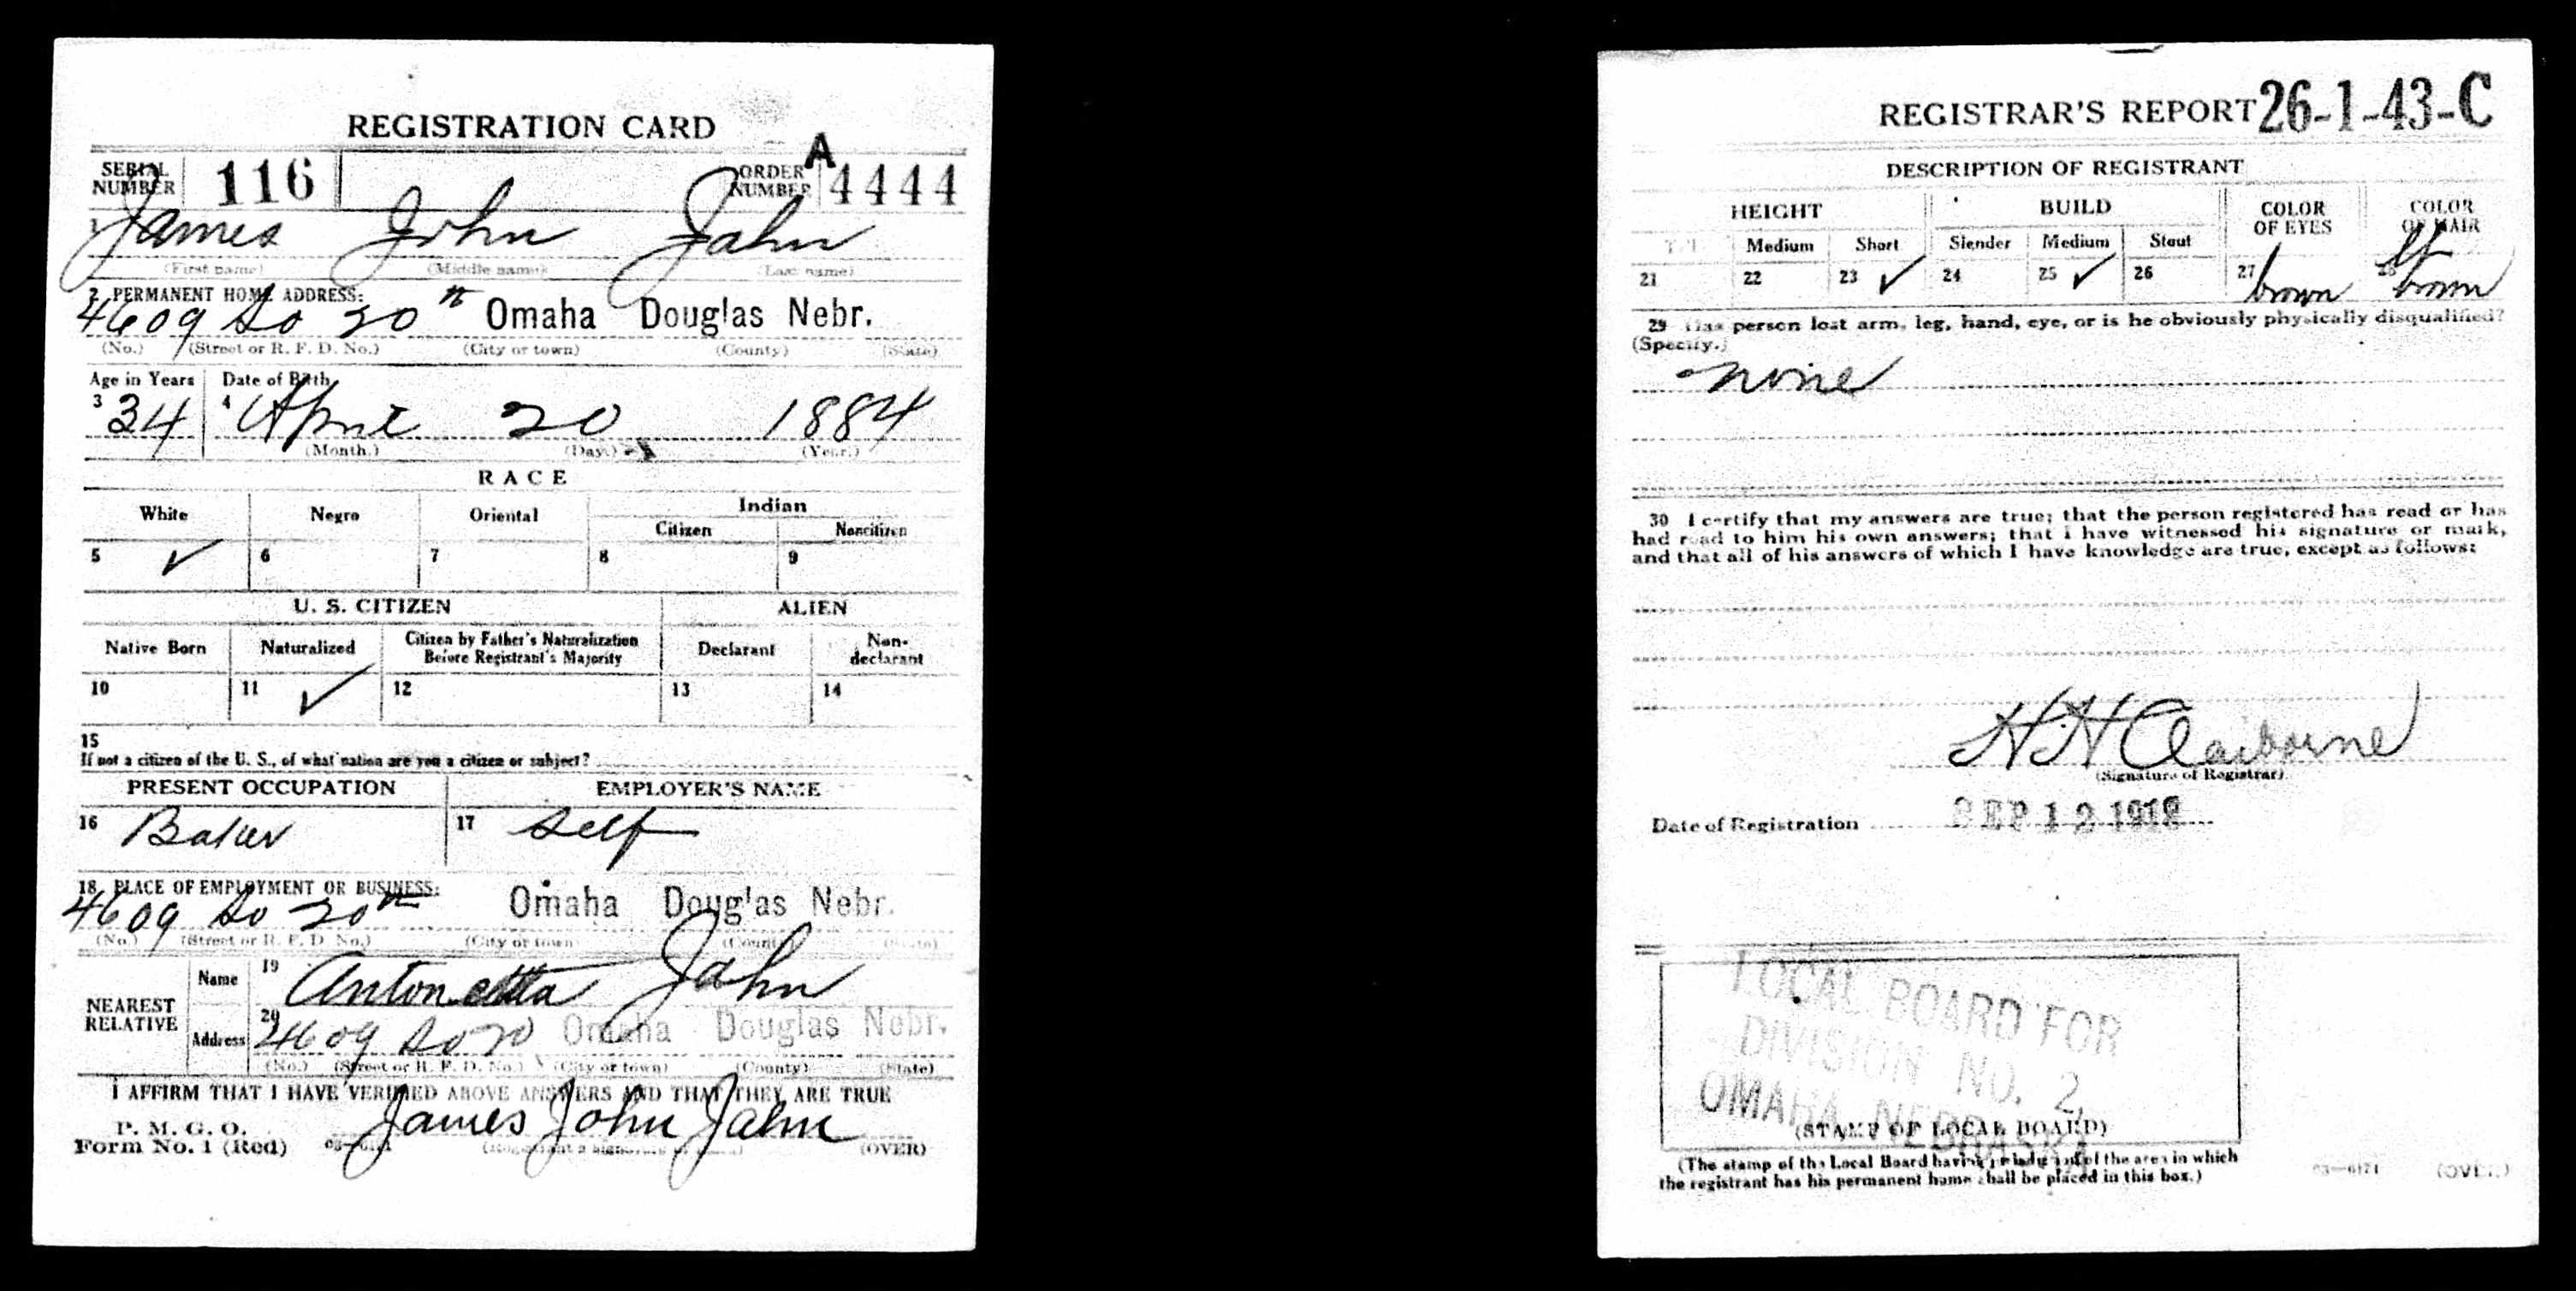 REGISTRATION CARD
SERIAL NUMBER 116 ORDER NUMBER A 4444
1 James John Jahn
(First name) (Middle name) (Last name)
2 PERMANENT HOME ADDRESS:
4609 So 20th Omaha Douglas Nebr.
(No.) (Street or R. F. D. No.) (City or town) (County) (State)
Age in Years Date of Birth
3 34 4 April 20 1884
(Month.) (Day.) (Year.)
RACE
White Negro Oriental Indian
Citizen Noncitizen
5 ✓ 6 7 8 9
U. S. CITIZEN ALIEN
Native Born Naturalized Citizen by Father's Naturalization Before Registrant's Majority Declarant Non-declarant
10 11 ✓ 12 13 14
15
If not a citizen of the U. S., of what nation are you a citizen or subject?
PRESENT OCCUPATION EMPLOYER'S NAME
16 Baker 17 Self
18 PLACE OF EMPLOYMENT OR BUSINESS:
4609 So 20th Omaha Douglas Nebr.
(No.) (Street or R. F. D. No.) (City or town) (County) (State)
NEAREST RELATIVE Name 19 Antonetta Jahn
Address 20 4609 So 20 Omaha Douglas Nebr.
(No.) (Street or R. F. D. No.) (City or town) (County) (State)
I AFFIRM THAT I HAVE VERIFIED ABOVE ANSWERS AND THAT THEY ARE TRUE
P. M. G. O.
Form No. 1 (Red) James John Jahn (OVER)
REGISTRAR'S REPORT 26-1-43-C
DESCRIPTION OF REGISTRANT
HEIGHT BUILD COLOR OF EYES COLOR OF HAIR
Medium Short Slender Medium Stout
21 22 23 ✓ 24 25 ✓ 26 27 brown 28 lt brown
29 Has person lost arm, leg, hand, eye, or is he obviously physically disqualified?
(Specify.)
none
30 I certify that my answers are true; that the person registered has read or has
had read to him his own answers; that I have witnessed his signature or mark,
and that all of his answers of which I have knowledge are true, except as follows:
H H Claiborne
(Signature of Registrar)
Date of Registration SEP 12 1918
LOCAL BOARD FOR
DIVISION NO. 2,
OMAHA, NEBRASKA
(STAMP OF LOCAL BOARD)
(The stamp of the Local Board having jurisdiction of the area in which
the registrant has his permanent home shall be placed in this box.)
03—6171 (OVER)